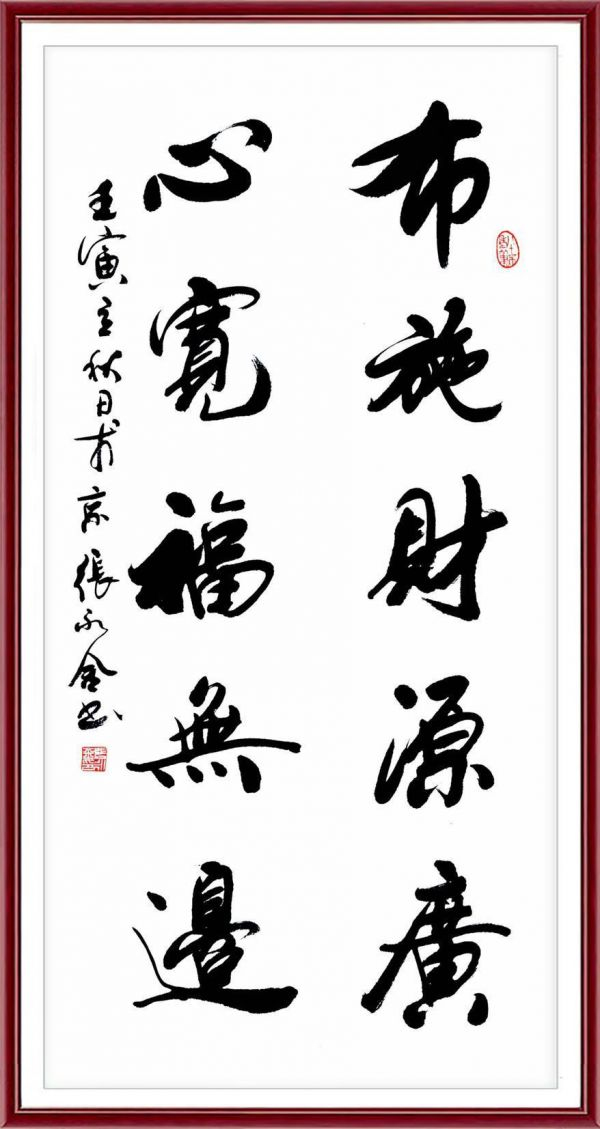 布施財源廣
心寬福無邊
壬寅立秋日於京張永金書